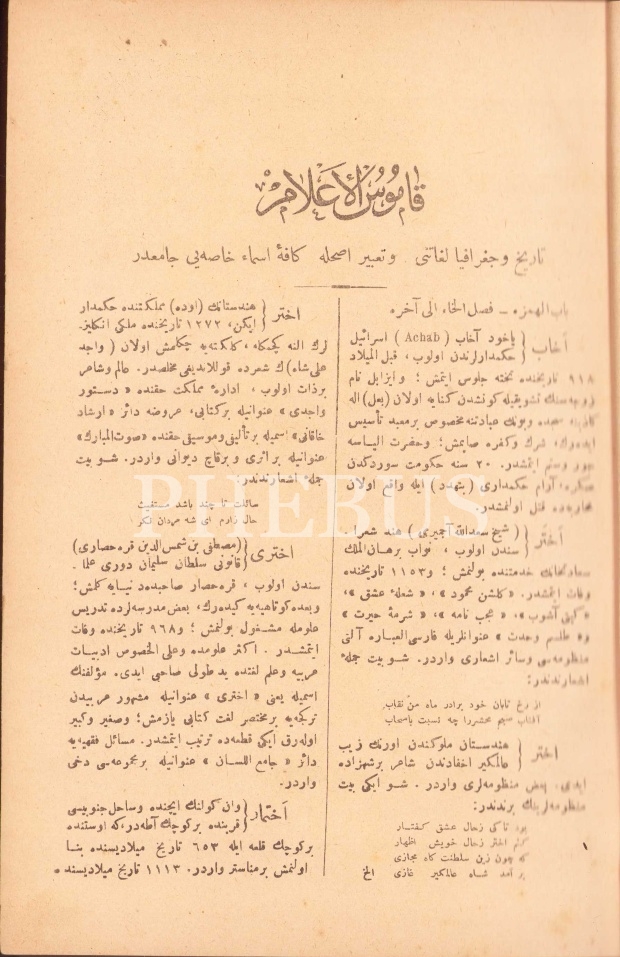 قاموس الأعلام
تاريخ وجغرافيا لغاتنى وتعبير اصحله كافهٔ اسماء خاصه‌يى جامعدر
باب الهمزه – فصل الخاء الى آخره
آخاب { ياخود آخاب (Achab) اسرائيل
حكمدارلرندن اولوب ، قبل الميلاد
٩١٨ تاريخنده تخته جلوس ايتمش ؛ وايزابل نام
زوجه‌سنك تشويقيله كونشدن كنايه اولان (بعل) اله
سجده وبونك عبادتنه مخصوص برمعبد تأسيس
ايده‌رك، شرك وكفره صاپمش؛ وحضرت الياسه
جور وستم ايتمشدر. ٢٠ سنه حكومت سوردكدن
صكره، آرام حكمدارى (بتهدد) ايله واقع اولان
محاربه‌ده قتل اولنمشدر.
اختر { (شيخ سعدالله آجميرى) هند شعرا-
سندن اولوب ، نواب برهان الملك
خدمتنده بولنمش ؛ و ١١٥٣ تاريخنده
وفات ايتمشدر. « كلشن محمود »، « شعلهٔ عشق »،
« آشوب »، « عجب نامه »، « شرمهٔ حيرت »
و« طلسم وحدت » عنوانلريله فارسى العباره آلتى
منظومه‌سى وسائر اشعارى واردر. شو بيت جملهٔ
اشعارندندر:
از رخ تابان خود برادر ماه من نقاب
آفتاب صبح محشررا چه نسبت باسحاب
اختر { هندستان ملوكندن اورنك زيب
عالمكير احفادندن شاعر برشهزاده
ايدى. بعض منظومه‌لرى واردر . شو ايكى بيت
منظومه‌لرينك برندندر:
بود تاكى زحال عشق كفتار
كنم اختر زحال خويش اظهار
كه چون زين سلطنت كاه مجازى
برآمد شاه عالمكير غازى الخ
اختر { هندستانك (اوده) مملكتنده حكمدار
ايكن، ١٢٧٢ تاريخنده ملكى انكليز-
لرك النه كچمكله، كلكته‌يه چكلمش اولان ( واجد
على شاه) ك شعرده قوللانديغى مخلصدر. عالم وشاعر
برذات اولوب ، ادارهٔ مملكت حقنده « دستور
واجدى » عنوانيله بركتابى، عروضه دائر « ارشاد
خاقانى» اسميله برتأليفى وموسيقى حقنده «صوت المبارك»
عنوانيله براثرى و برقاچ ديوانى واردر. شو بيت
جملهٔ اشعارندندر:
سائلت تا چند باشد مستغيث
حال زارم اى شه مردان نكر
اخترى { (مصطفى بن شمس الدين قره حصارى)
قانونى سلطان سليمان دورى علما-
سندن اولوب ، قره حصار صاحبده دنيايه كلمش؛
وبعده كوتاهيه‌يه كيده‌رك، بعض مدرسه‌لرده تدريس
علومله مشغول بولنمش ؛ و ٩٦٨ تاريخنده وفات
ايتمشدر . اكثر علومده وعلى الخصوص ادبيات
عربيه وعلم لغتده يد طولى صاحبى ايدى. مؤلفنك
اسميله يعنى « اخترى » عنوانيله مشهور عربيدن
تركجه‌يه برمختصر لغت كتابى يازمش؛ وصغير وكبير
اوله‌رق ايكى قطعه‌ده ترتيب ايتمشدر. مسائل فقهيه‌يه
دائر « جامع اللسان » عنوانيله برمجموعه‌سى دخى
واردر.
اختمار { وان كولنك ايچنده وساحل جنوبيسى
قربنده بركوچك آطه‌در، كه اوستنده
بركوچك قلعه ايله ٦٥٣ تاريخ ميلاديسنده بنا
اولنمش برمناستر واردر. ١١١٣ تاريخ ميلاديسنده
١
PHEBUS